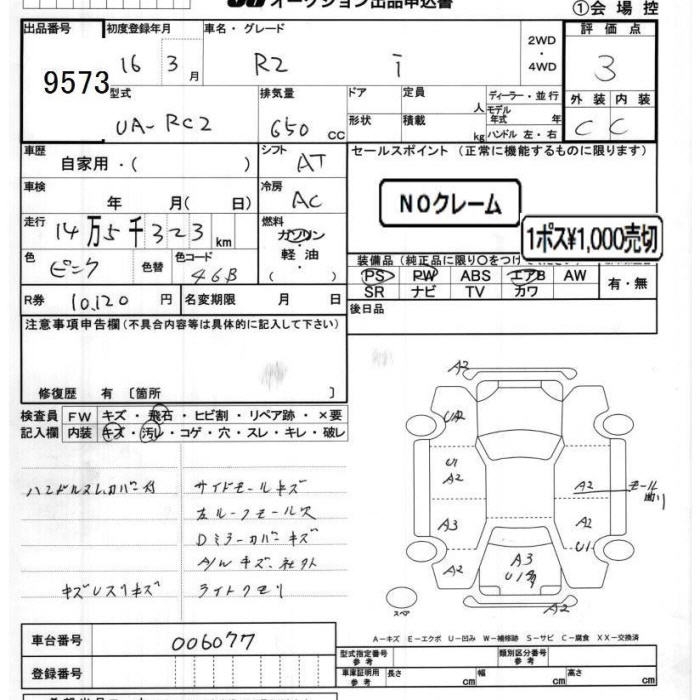 オークション出品申込書
①会場控
出品番号 初度登録年月 車名・グレード 2WD・4WD 評価点
9573 16 3月 R2 i 3
型式 排気量 ドア 定員 人 ディーラー・並行 外装 内装
UA-RC2 650 cc 形状 積載 kg モデル年式 年 ハンドル 左・右 C C
車歴 自家用・( ) シフト AT セールスポイント (正常に機能するものに限ります)
車検 年 月( 日) 冷房 AC
NOクレーム
1ポス¥1,000売切
走行 14万5千323km 燃料 ガソリン・軽油・( )
色 ピンク 色替 色コード 46B
装備品(純正品に限り○をつけて
PS PW ABS エアB AW 有・無
SR ナビ TV カワ
R券 10,120円 名変期限 月 日
後日品
注意事項申告欄(不具合内容等は具体的に記入して下さい)
修復歴 有〔箇所 〕
検査員記入欄 FW キズ・飛石・ヒビ割・リペア跡・×要
内装 キズ・汚レ・コゲ・穴・スレ・キレ・破レ
ハンドルスレカバー付 サイドモールキズ
左ルーフモールス
Dミラーカバーキズ
A/Wキズ・社外
キズUスリキズ ライトクモリ
A2
UA2
U1
A2
A3
A2
A2
A2
U1
モール曲リ
A3
U1多
A2
スペア
A-キズ E-エクボ U-凹み W-補修跡 S-サビ C-腐食 XX-交換済
車台番号 006077
型式指定番号 参考 類別区分番号 参考
登録番号
車庫証明用 参考 長さ cm 幅 cm 高さ cm